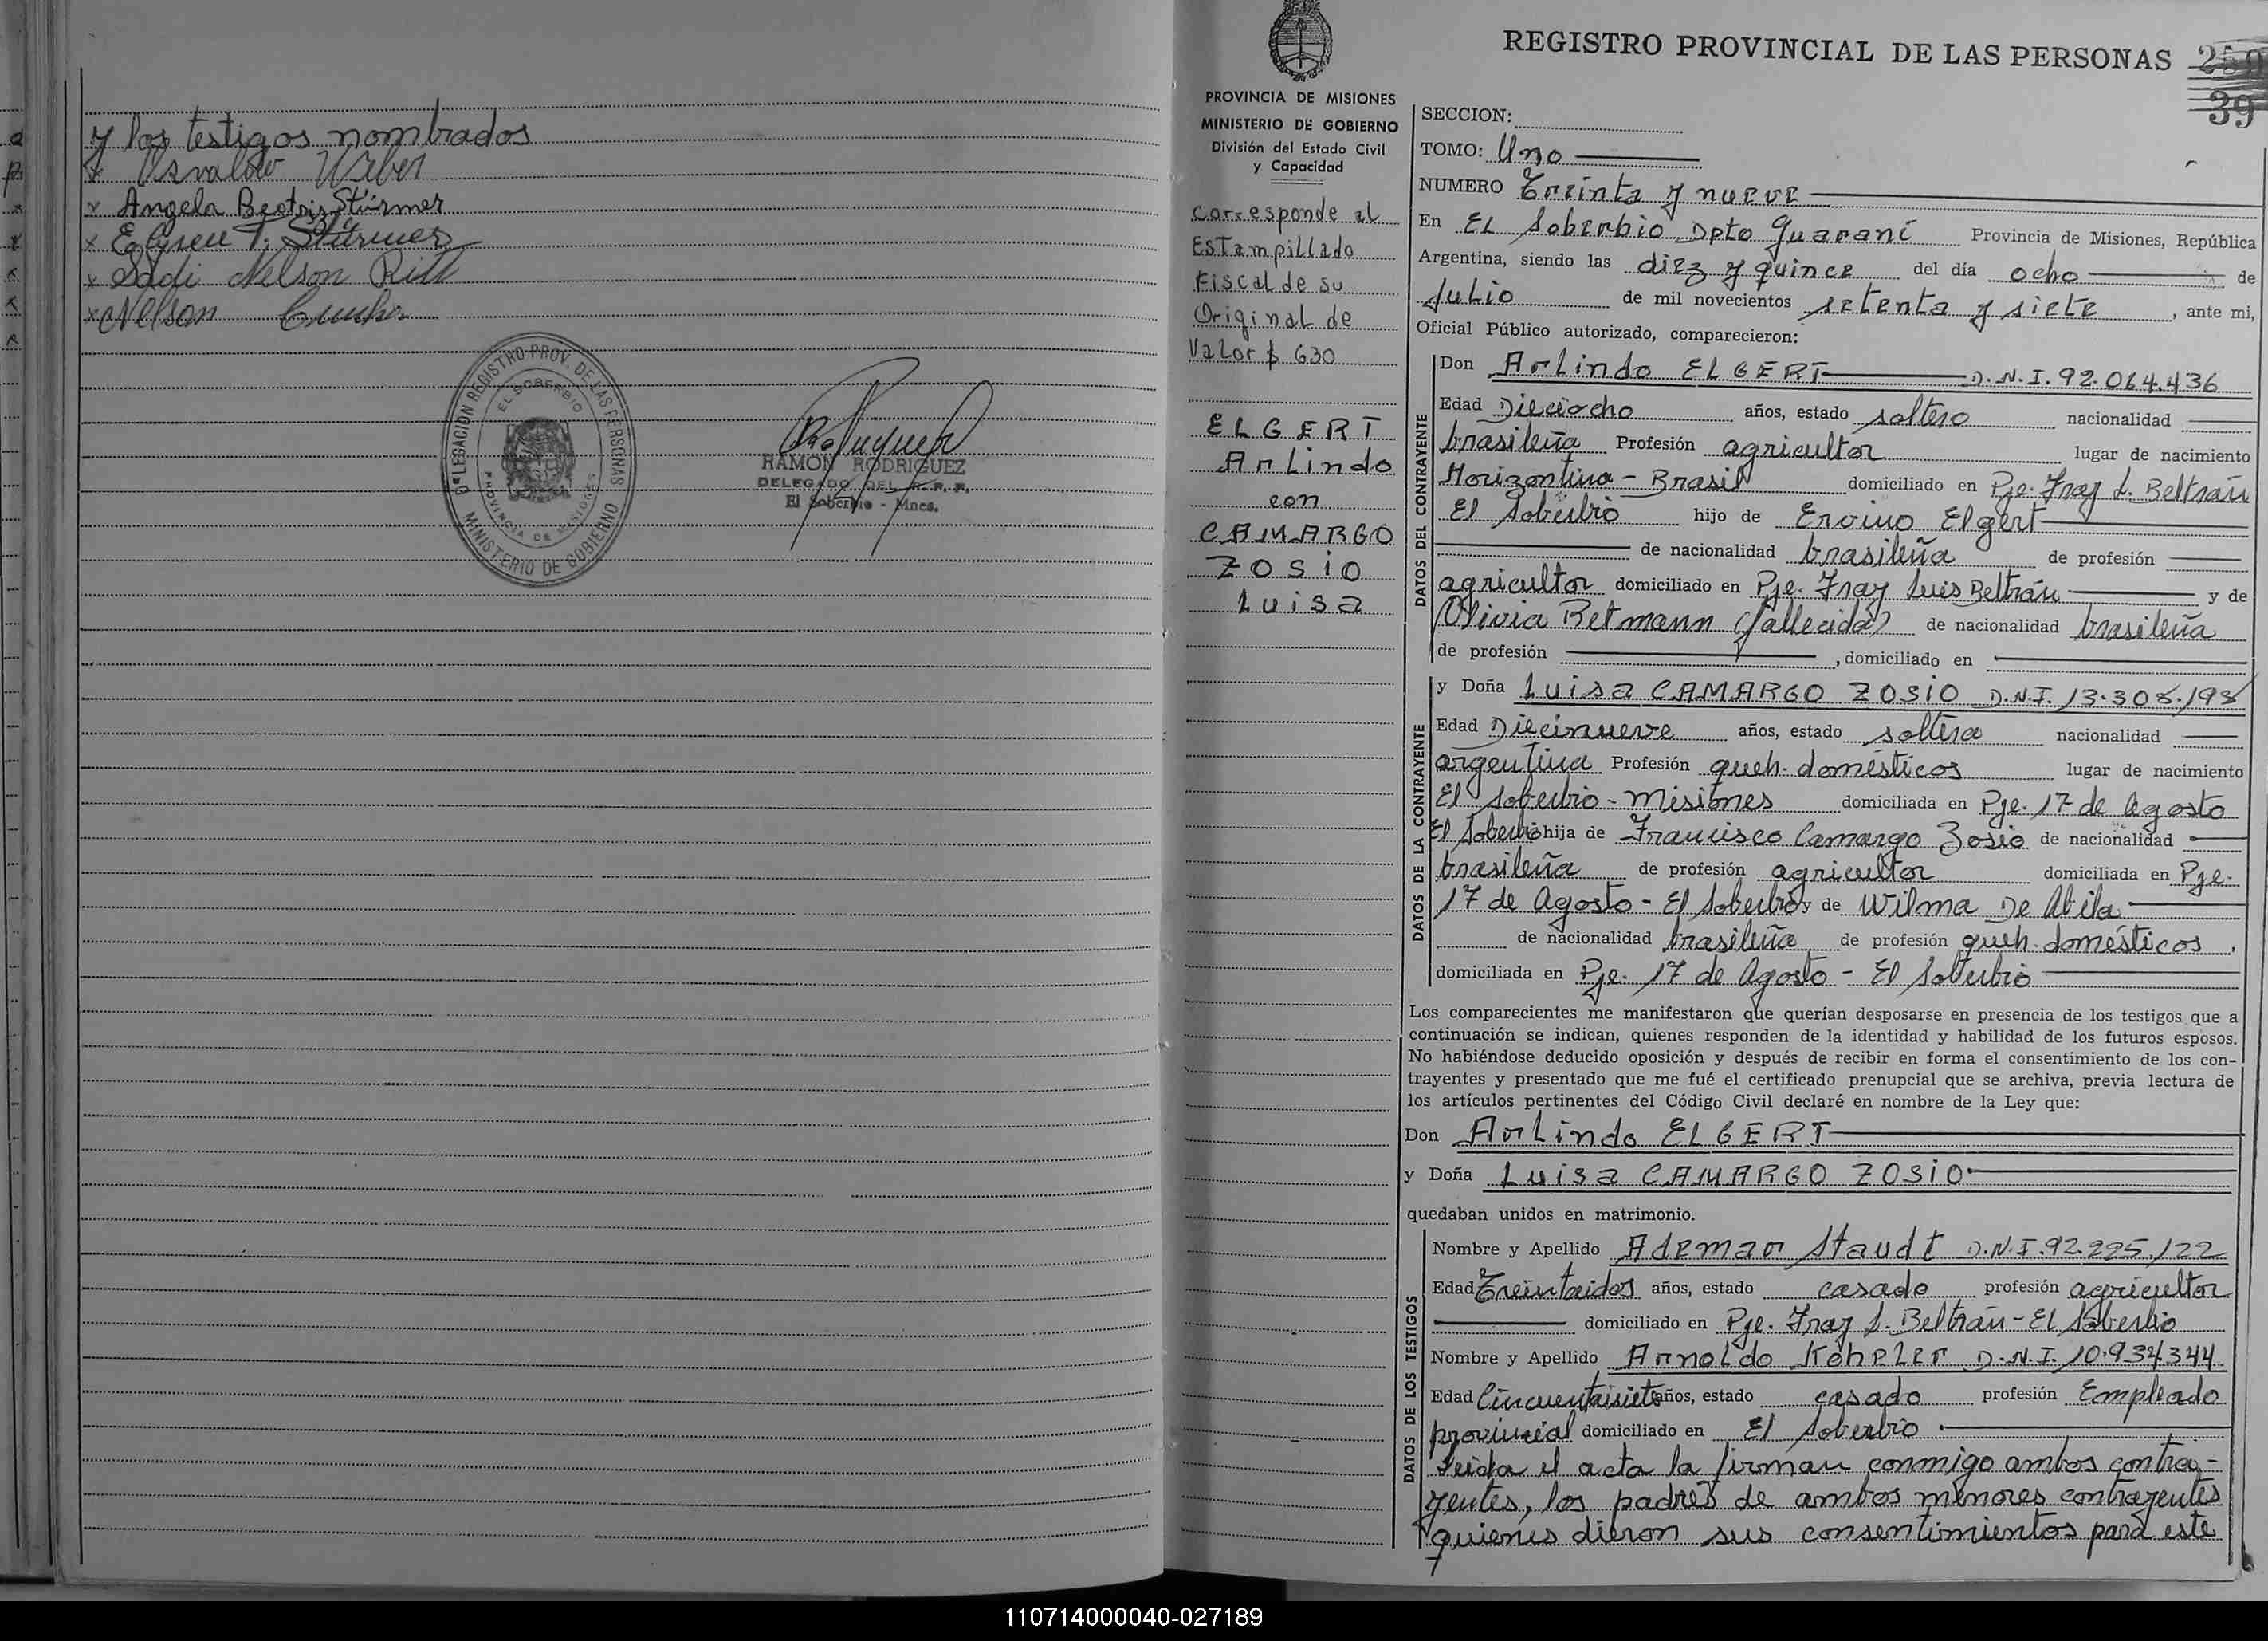 y los testigos nombrados
x Osvaldo Weber
x Angela Beatriz Stürmer
x Stürmer
x Sadi Nelson Rill
x Nelson Cunha
DELEGACION REGISTRO PROV. DE LAS PERSONAS
EL SOBERBIO
PROVINCIA DE MISIONES
MINISTERIO DE GOBIERNO
RAMON RODRIGUEZ
DELEGADO DEL R.P.P.
El Soberbio - Mnes.
REGISTRO PROVINCIAL DE LAS PERSONAS
39
PROVINCIA DE MISIONES
MINISTERIO DE GOBIERNO
División del Estado Civil
y Capacidad
Corresponde al
Estampillado
Fiscal de su
Original de
Valor $ 630
ELGERT
Arlindo
con
CAMARGO
ZOSIO
Luisa
SECCION:
TOMO: Uno
NUMERO Treinta y nueve
En EL Soberbio Dpto Guaraní Provincia de Misiones, República
Argentina, siendo las diez y quince del día ocho de
Julio de mil novecientos setenta y siete, ante mi,
Oficial Público autorizado, comparecieron:
DATOS DEL CONTRAYENTE
Don Arlindo ELGERT D.N.I. 92.064.436
Edad Dieciocho años, estado soltero nacionalidad
brasileña Profesión agricultor lugar de nacimiento
Horizontina - Brasil domiciliado en Pje. Fray L. Beltrán
El Soberbio hijo de Ervino Elgert
de nacionalidad brasileña de profesión
agricultor domiciliado en Pje. Fray Luis Beltrán y de
Olivia Retmann (fallecida) de nacionalidad brasileña
de profesión , domiciliado en
DATOS DE LA CONTRAYENTE
y Doña Luisa CAMARGO ZOSIO D.N.I. 13.308.198
Edad Diecinueve años, estado soltera nacionalidad
argentina Profesión queh. domésticos lugar de nacimiento
El Soberbio - Misiones domiciliada en Pje. 17 de Agosto
El Soberbio hija de Francisco Camargo Zosio de nacionalidad
brasileña de profesión agricultor domiciliada en Pje.
17 de Agosto - El Soberbio y de Wilma De Abila
de nacionalidad brasileña de profesión queh. domésticos,
domiciliada en Pje. 17 de Agosto - El Soberbio
Los comparecientes me manifestaron que querían desposarse en presencia de los testigos que a
continuación se indican, quienes responden de la identidad y habilidad de los futuros esposos.
No habiéndose deducido oposición y después de recibir en forma el consentimiento de los con-
trayentes y presentado que me fué el certificado prenupcial que se archiva, previa lectura de
los artículos pertinentes del Código Civil declaré en nombre de la Ley que:
Don Arlindo ELGERT
y Doña Luisa CAMARGO ZOSIO
quedaban unidos en matrimonio.
DATOS DE LOS TESTIGOS
Nombre y Apellido Ademar Staudt D.N.I. 92.225.122
Edad Treintaidos años, estado casado profesión agricultor
domiciliado en Pje. Fray L. Beltrán - El Soberbio
Nombre y Apellido Arnoldo Köhpler D.N.I. 10.934.344
Edad Cincuentaisiete años, estado casado profesión Empleado
provincial domiciliado en El Soberbio
Leida el acta la firman conmigo ambos contra-
yentes, los padres de ambos menores contrayentes
quienes dieron sus consentimientos para este
110714000040-027189